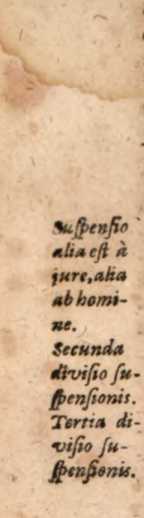 Suſpenſio
alia eſt à
jure, alia
ab homi-
ne.
Secunda
diviſio ſu-
ſpenſionis.
Tertia di-
viſio ſu-
ſpenſionis.